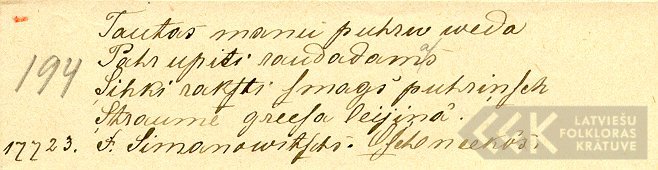 Tautas manu puhru weda
194 Pahr upiti raudadamas
Sihki raksti smags puhrinsch
Straumē greesa leijinā.
17723. F. Simanowitschs.
LATVIEŠU
FOLKLORAS
KRĀTUVE